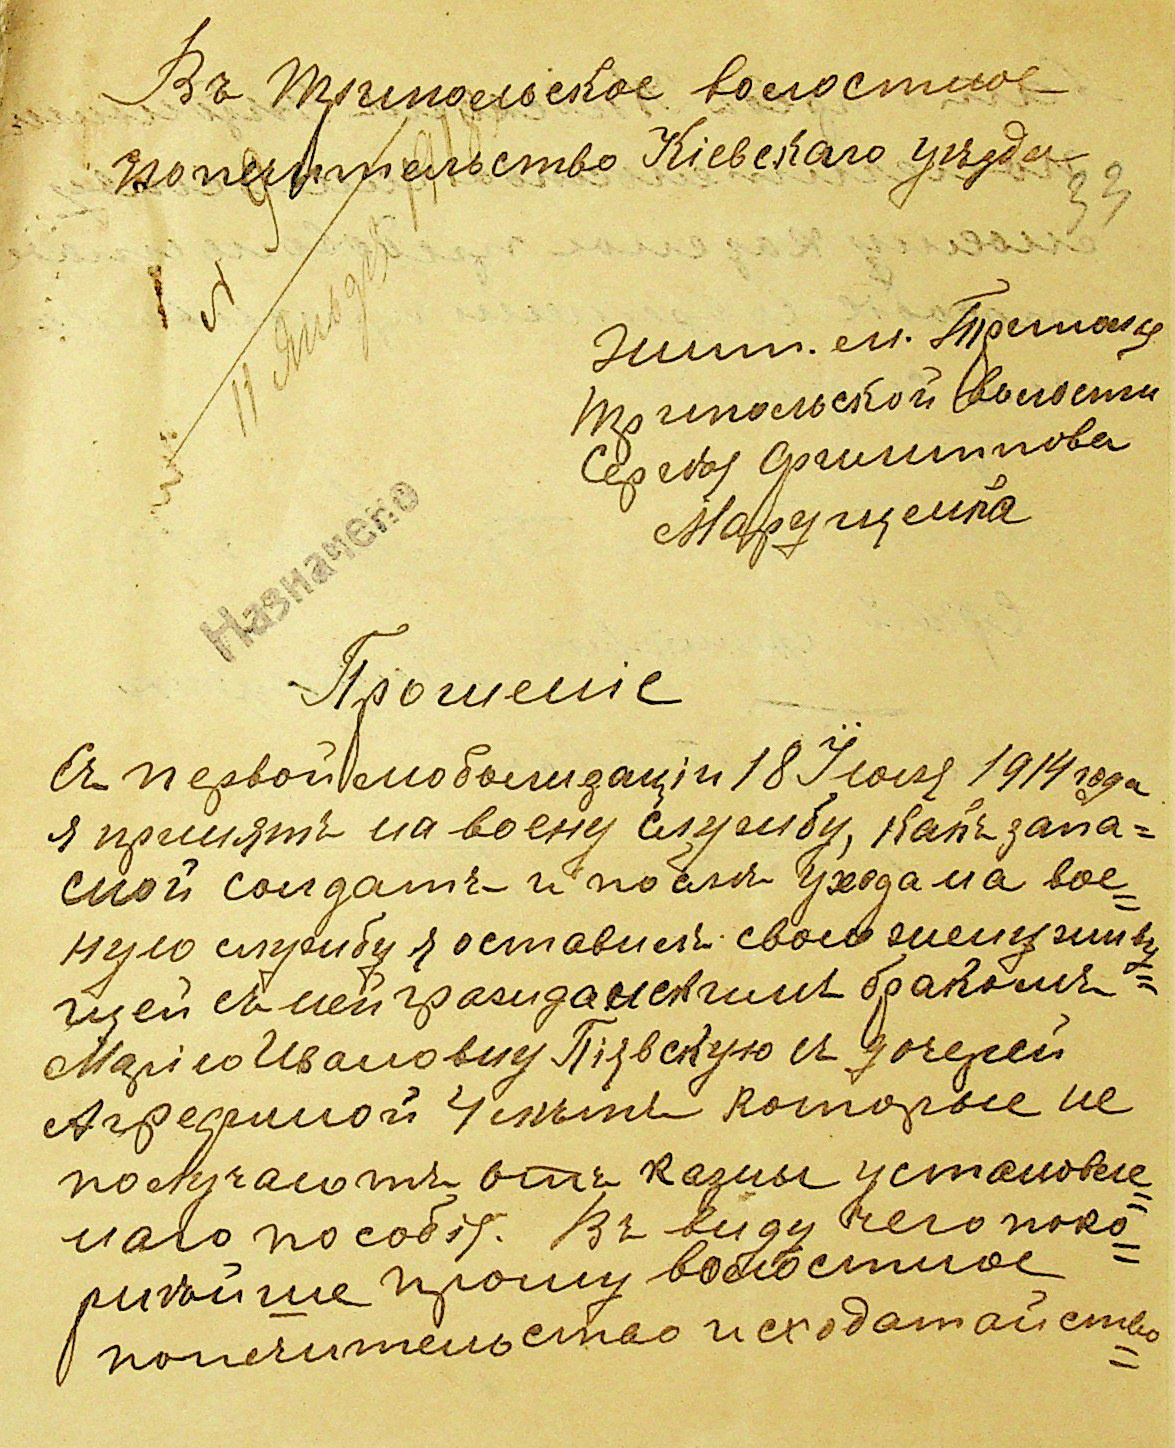 Въ Трипольское волостное
попечительство Кіевскаго уѣзда
33
Жит. м. Триполья
Трипольской волости
Сергѣя Филиппова
Марущенка
Назначено
Прошеніе
Съ первой моболизаціи 18 Іюля 1914 года
я принятъ на воену службу, какъ запа=
сной солдатъ и послѣ ухода на вое=
ную службу я оставилъ свою жену живу=
щей съ ней гражданскимъ бракомъ
Марію Ивановну Піявскую съ дочерей
Агрефиной 4 лѣтъ которые не
получаютъ отъ казны установле=
наго пособія. Въ виду чего поко=
рнѣйше прошу волостное
попечительство исходатайство=